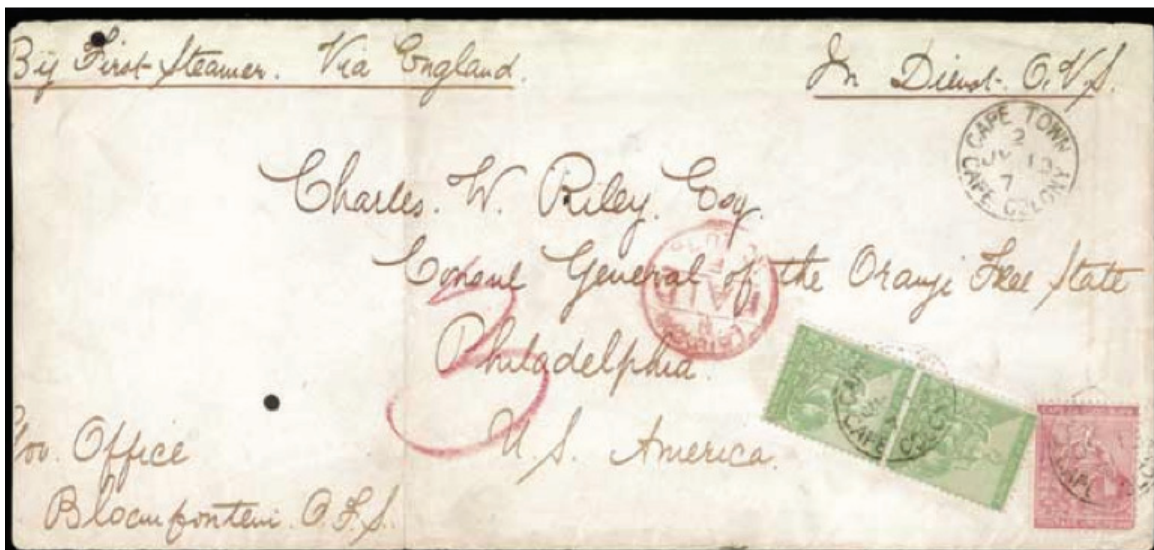 By First Steamer. Via England.
In Dienst O.V.S.
CAPE TOWN
2
JY 13
7
CAPE COLONY
Charles. W. Riley. Esq.
Consul General of the Orange Free State
PAID
Philadelphia.
3
U.S. America.
Gov. Office
Bloemfontein. O.F.S.
CAPE
CAPE COLONY
CAPE